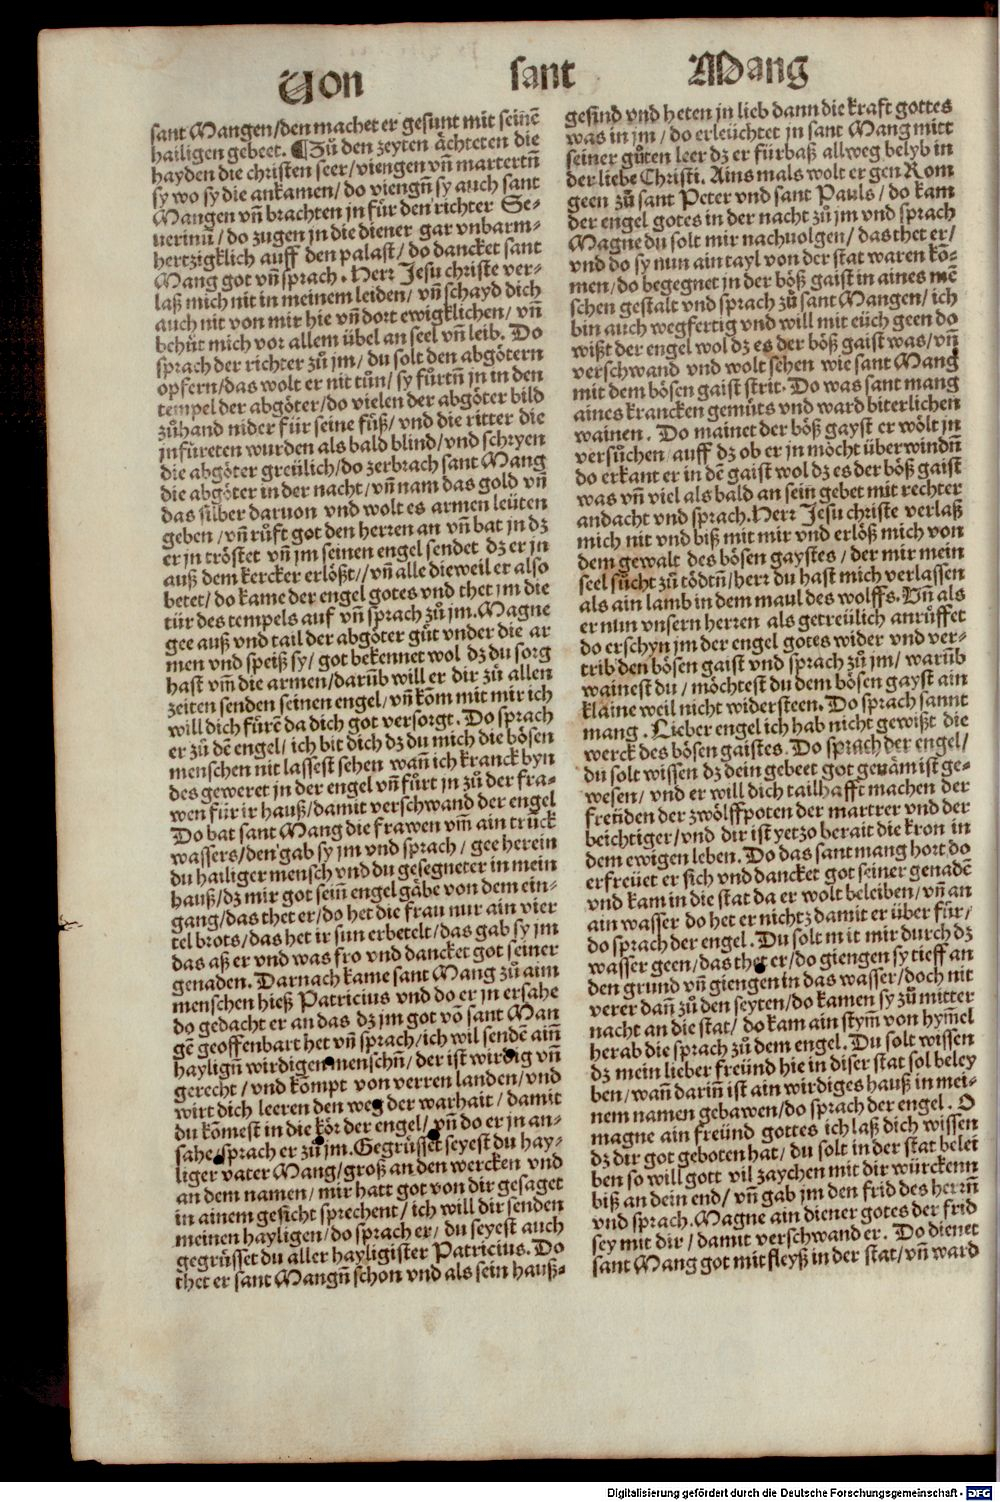 Von sant Mang
sant Mangen/den machet er gesunt mit seinē
hailigen gebeet. ¶Zů den zeyten ächteten die
hayden die christen seer/viengen vn̄ martertn̄
sy wo sy die ankamen/do viengn̄ sy auch sant
Mangen vn̄ brachten jn für den richter Se-
uerinū/do zugen jn die diener gar vnbarm-
hertzigklich auff den palast/do dancket sant
Mang got vn̄ sprach. Herr Jesu christe ver-
laß mich nit in meinem leiden/vn̄ schayd dich
auch nit von mir hie vn̄ dort ewigklichen/vn̄
behůt mich vor allem übel an seel vn̄ leib. Do
sprach der richter zů jm/du solt den abgötern
opfern/das wolt er nit tůn/sy fůrtn̄ jn in den
tempel der abgöter/do vielen der abgöter bild
zůhand nider für seine fůß/vnd die ritter die
jnfůreten wurden als bald blind/vnd schryen
die abgöter greülich/do zerbrach sant Mang
die abgöter in der nacht/vn̄ nam das gold vn̄
das silber daruon vnd wolt es armen leüten
geben/vn̄ růft got den herren an vn̄ bat jn dz
er jn tröstet vn̄ jm seinen engel sendet dz er jn
auß dem kercker erlößt//vn̄ alle dieweil er also
betet/do kame der engel gotes vnd thet jm die
tür des tempels auf vn̄ sprach zů jm. Magne
gee auß vnd tail der abgöter gůt vnder die ar
men vnd speiß sy/got bekennet wol dz du sorg
hast vm̄ die armen/darūb will er dir zů allen
zeiten senden seinen engel/vn̄ kom̄ mit mir ich
will dich fůrē da dich got versorgt. Do sprach
er zů dē engel/ich bit dich dz du mich die bösen
menschen nit lassest sehen wan̄ ich kranck byn
des geweret jn der engel vn̄ fůrt jn zů der fra-
wen für ir hauß/damit verschwand der engel
Do bat sant Mang die frawen vm̄ ain trůck
wassers/den gab sy jm vnd sprach/gee herein
du hailiger mensch vnd du gesegneter in mein
hauß/dz mir got sein̄ engel gäbe von dem ein-
gang/das thet er/do het die frau nur ain vier
tel brots/das het ir sun erbetelt/das gab sy jm
das aß er vnd was fro vnd dancket got seiner
genaden. Darnach kame sant Mang zů aim
menschen hieß Patricius vnd do er jn ersahe
do gedacht er an das dz jm got vō sant Man
gē geoffenbart het vn̄ sprach/ich wil sendē ain̄
haylign̄ wirdigen menschn̄/der ist wirdig vn̄
gerecht/vnd kōmpt von verren landen/vnd
wirt dich leeren den weg der warhait/damit
du kōmest in die kör der engel/vn̄ do er jn an-
sahe/sprach er zů jm. Gegrüsset seyest du hay-
liger vater Mang/groß an den wercken vnd
an dem namen/mir hatt got von dir gesaget
in ainem gesicht sprechent/ich will dir senden
meinen hayligen/do sprach er/du seyest auch
gegrüsset du aller hayligister Patricius. Do
thet er sant Mangn̄ schon vnd als sein hauß-
gesind vnd heten jn lieb dann die kraft gottes
was in jm/do erleüchtet jn sant Mang mitt
seiner gůten leer dz er fürbaß allweg belyb in
der liebe Christi. Ains mals wolt er gen Rom
geen zů sant Peter vnd sant Pauls/do kam
der engel gotes in der nacht zů jm vnd sprach
Magne du solt mir nachuolgen/das thet er/
vnd do sy nun ain tayl von der stat waren kō-
men/do begegnet jn der böß gaist in aines mē
schen gestalt vnd sprach zů sant Mangen/ich
bin auch wegfertig vnd will mit eüch geen do
wißt der engel wol dz es der böß gaist was/vn̄
verschwand vnd wolt sehen wie sant Mang
mit dem bösen gaist strit. Do was sant mang
aines krancken gemüts vnd ward biterlichen
wainen. Do mainet der böß gayst er wölt jn
versůchen/auff dz ob er jn möcht überwindn̄
do erkant er in dē gaist wol dz es der böß gaist
was vn̄ viel als bald an sein gebet mit rechter
andacht vnd sprach. Herr Jesu christe verlaß
mich nit vnd biß mit mir vnd erlöß mich von
dem gewalt des bösen gaystes/der mir mein
seel sůcht zů tödtn̄/herr du hast mich verlassen
als ain lamb in dem maul des wolffs. Vn̄ als
er nun vnsern herren als getreülich anrůffet
do erschyn jm der engel gotes wider vnd ver-
trib den bösen gaist vnd sprach zů jm/warūb
wainest du/möchtest du dem bösen gayst ain
klaine weil nicht widersteen. Do sprach sannt
mang. Lieber engel ich hab nicht gewißt die
werck des bösen gaistes. Do sprach der engel/
du solt wissen dz dein gebeet got genäm ist ge-
wesen/vnd er will dich tailhafft machen der
freüden der zwölffpoten der martrer vnd der
beichtiger/vnd dir ist yetzo berait die kron in
dem ewigen leben. Do das sant mang hort do
erfreüet er sich vnd dancket got seiner genadē
vnd kam in die stat da er wolt beleiben/vn̄ an
ain wasser do het er nichtz damit er über für/
do sprach der engel. Du solt mit mir durch dz
wasser geen/das thet er/do giengen sy tieff an
den grund vn̄ giengen in das wasser/doch nit
verer dan̄ zů den seyten/do kamen sy zů mitter
nacht an die stat/do kam ain stym̄ von hym̄el
herab die sprach zů dem engel. Du solt wissen
dz mein lieber freünd hie in diser stat sol beley
ben/wan̄ darin̄ ist ain wirdiges hauß in mei-
nem namen gebawen/do sprach der engel. O
magne ain freünd gottes ich laß dich wissen
dz dir got geboten hat/du solt in der stat belei
ben so will gott vil zaychen mit dir würckenn
biß an dein end/vn̄ gab jm den frid des herrn̄
vnd sprach. Magne ain diener gotes der frid
sey mit dir/damit verschwand er. Do dienet
sant Mang got mit fleyß in der stat/vn̄ ward
Digitalisierung gefördert durch die Deutsche Forschungsgemeinschaft - DFG